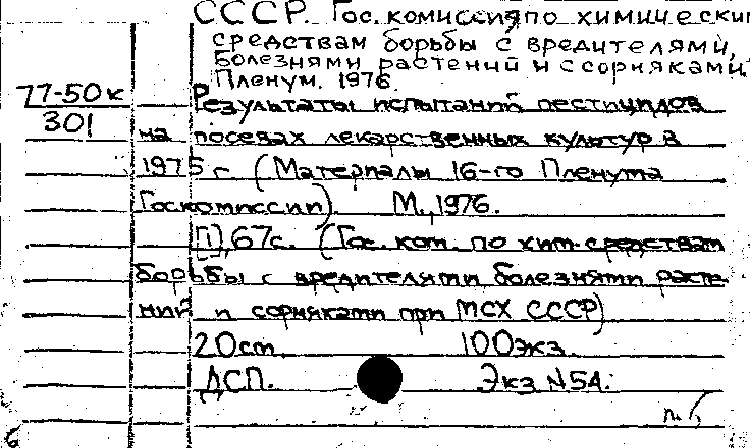 СССР. Гос. комиссия по химическим
средствам борьбы с вредителями,
болезнями растений и с сорняками.
Пленум. 1976.
77-50к
301
Результаты испытаний пестицидов
на посевах лекарственных культур в
1975 г (Материалы 16-го Пленума
Госкомиссии). М., 1976.
[1], 67с. (Гос. ком. по хим. средствам
борьбы с вредителями болезнями расте-
ний и сорняками при МСХ СССР)
20см. 100экз.
ДСП. Экз N54.